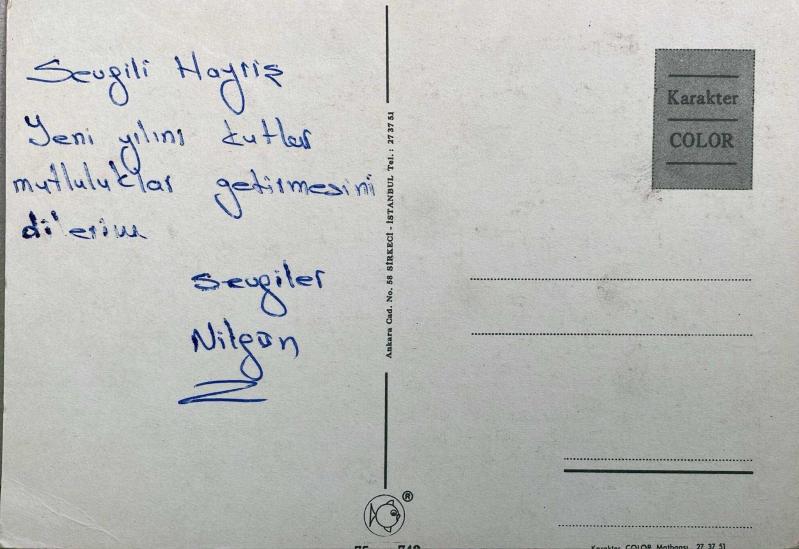 Sevgili Hayriş
Yeni yılını kutlar
mutluluklar getirmesini
dilerim
Sevgiler
Nilgün
Ankara Cad. No. 58 SİRKECİ - İSTANBUL Tel.: 27 37 51
Karakter
COLOR
®
Karakter COLOR Matbaası 27 37 51